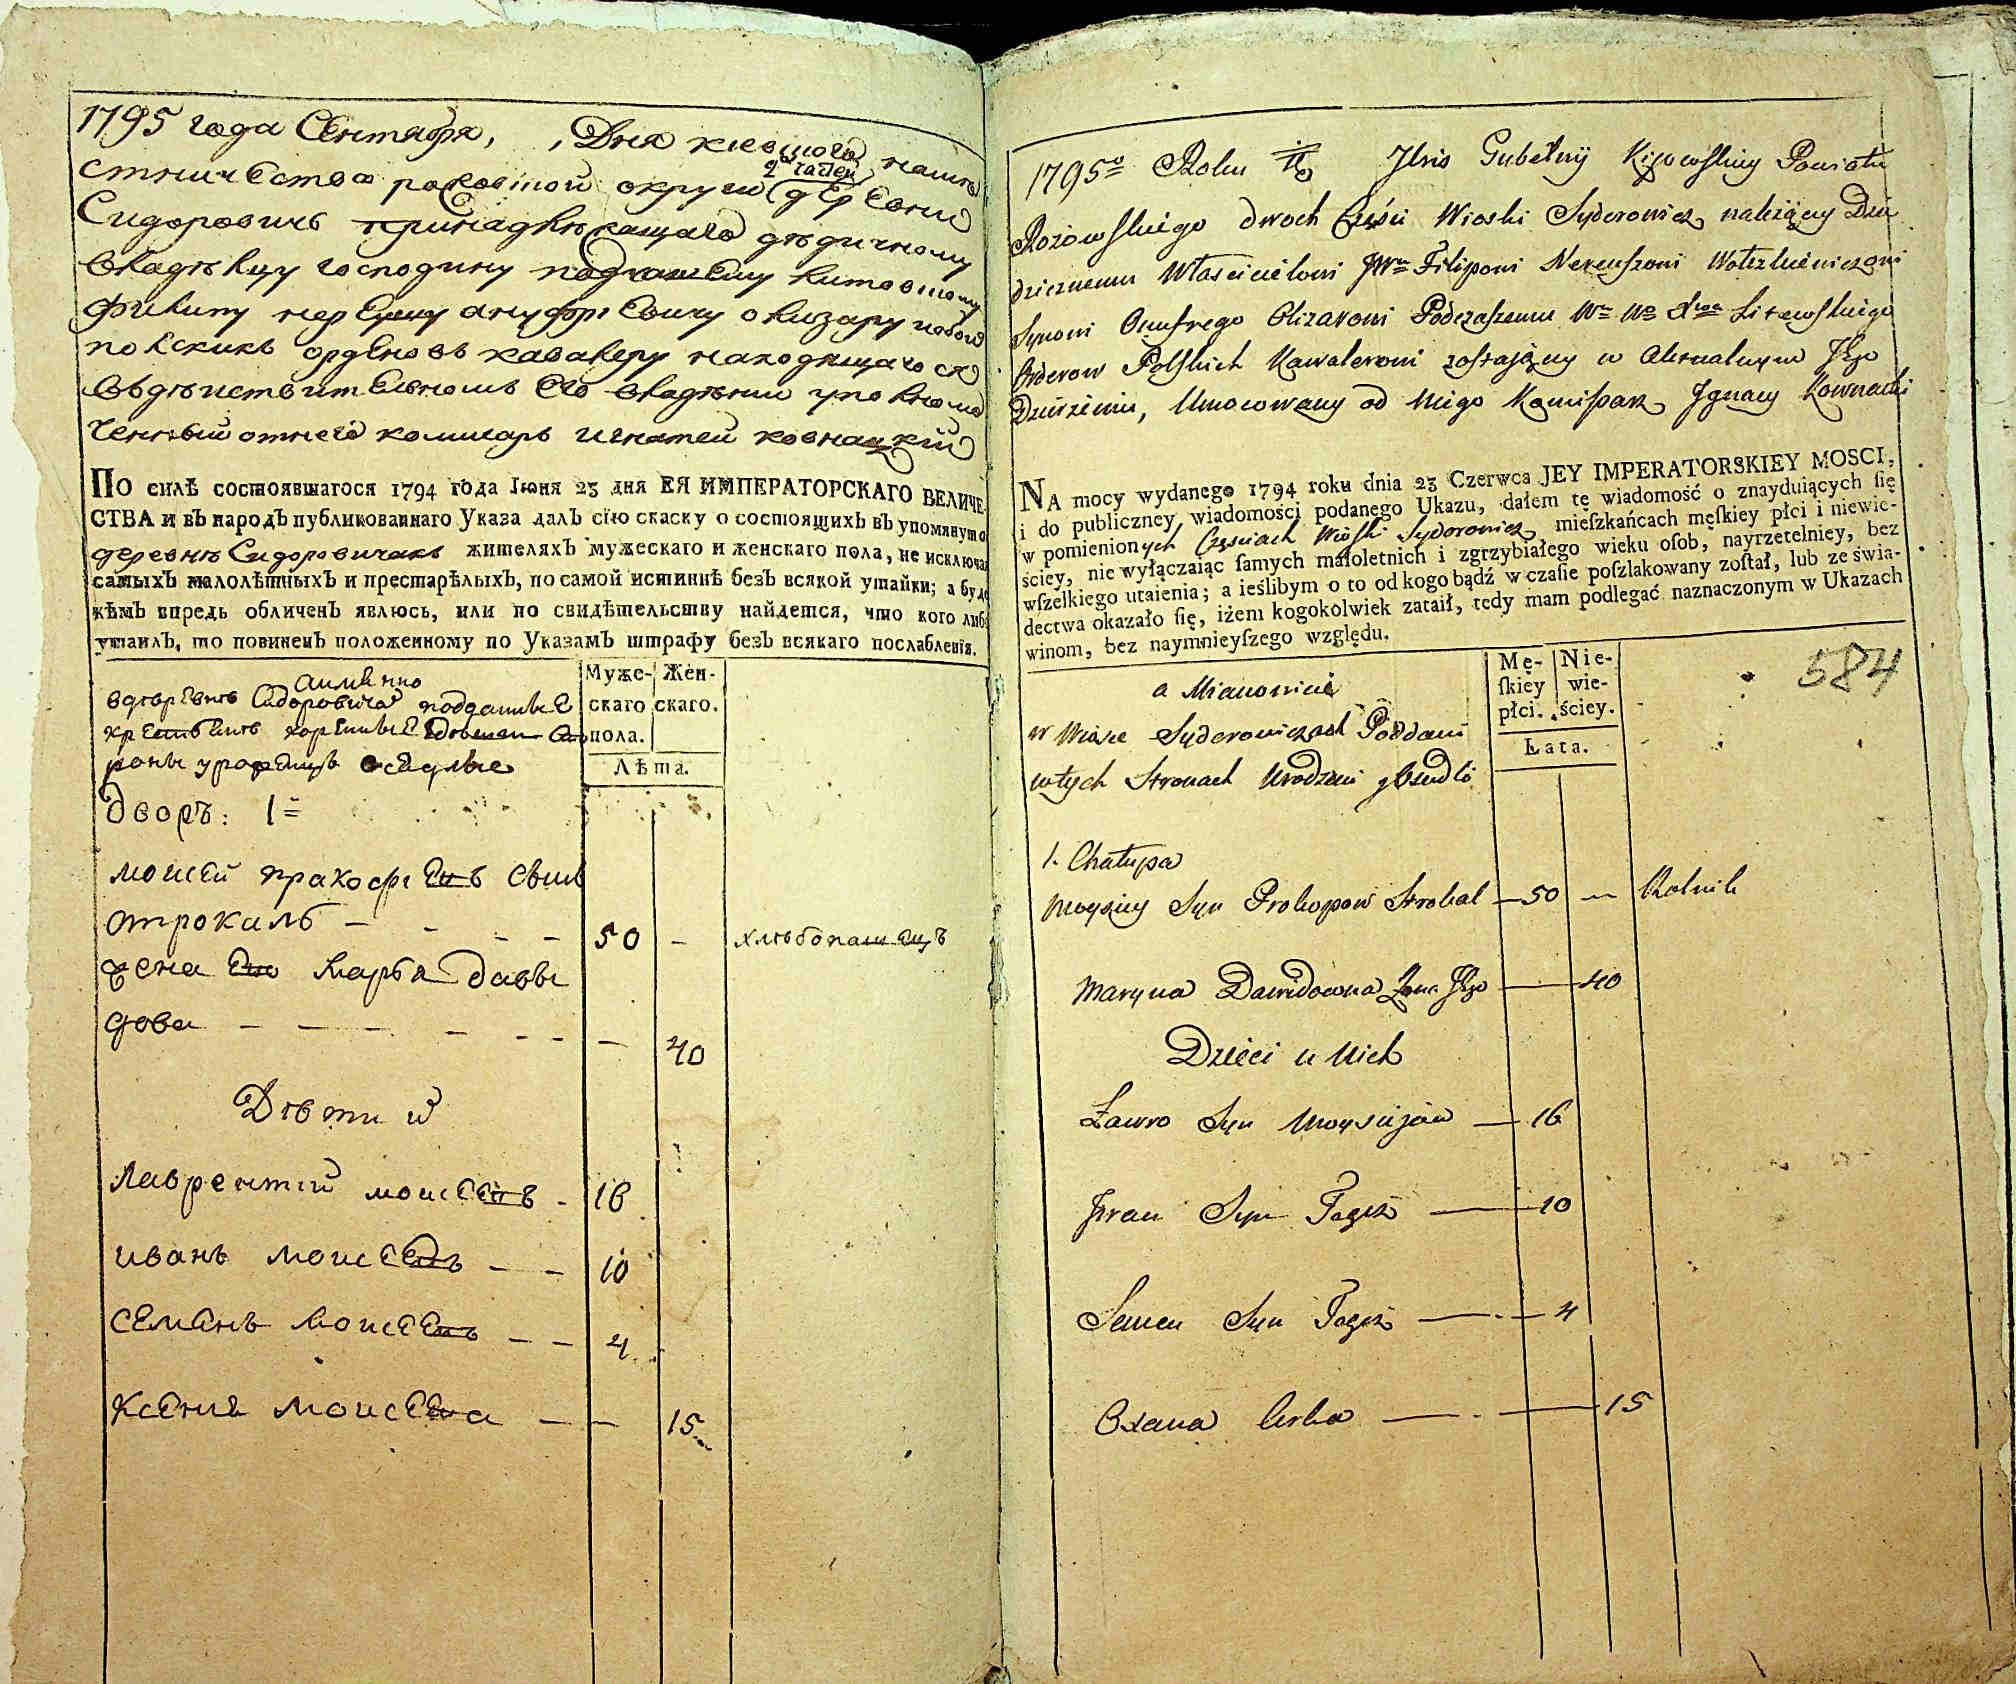 1795 года Сентября, , Дня киевшого намѣ
2 частей
стничества роховшой округи деревни
Сидоровичъ принадлежащаго дѣдичному
владѣлцу господину подчашему литовшому
Филипу нереушу ануфриевичу олизару
полскихъ орденовъ кавалеру находящагося
въдѣиствителномъ его владѣнии уполномо
ченный отнего комисаръ игнатей ковнацкий
По силѣ состоявшагося 1794 года Iюня 23 дня ЕЯ ИМПЕРАТОРСКАГО ВЕЛИЧЕ-
СТВА и въ народъ публикованнаго Указа далъ сїю скаску о состоящихъ въ упомянуто
деревнѣ Сидоровичахъ жителяхъ мужескаго и женскаго пола, не исключа
самыхъ малолѣтныхъ и престарѣлыхъ, по самой истиннѣ безъ всякой утайки; а буд
кѣмъ впредь обличенъ явлюсь, или по свидѣтельству найдется, что кого либ
утаилъ, то повиненъ положенному по Указамъ штрафу безъ всякаго послабленїя.
Муже-
скаго
пола.
Жен-
скаго.
Лѣта.
аимѣнно
вдѣревнѣ Сидоровича подданные
роны урожденцы оседлые
дворъ: 1=
моисей пракофиевъ сынъ
отрокалъ — - - — 50 – хлѣбопашецъ
жена ево марья давы
дова — — — — - - — 40
Дѣти й
лаврентий моисеевъ - 16
иванъ моисеевъ — — 10
семенъ моисеевъ — — 4
ксения моисеева — — 15
1795º Roku Jhris Guberny Kijowskiey Powiatu
Rożowskiego dwoch Części Wioski Syderowicz należący Dzie
dzicznemu Włascicielowi JWu Filipowi Nereuszowi
Synowi Onufrego Olizarowi Podczaszemu Litewskiego
Orderow Polskich Kawalerowi zostaiący w Aktualnym Jego
Dzierzeniu, Umocowany od Niego Komisarz Jgnacy Kownacki
NA mocy wydanego 1794 roku dnia 23 Czerwca JEY IMPERATORSKIEY MOSCI,
i do publiczney wiadomości podanego Ukazu, dałem tę wiadomość o znayduiących ſię
w pomienionych Częsciach Wioski Syderowicz mieſzkańcach męſkiey płci i niewie-
ściey, nie wyłączaiąc ſamych małoletnich i zgrzybiałego wieku oſob, nayrzetelniey, bez
wſzelkiego utaienia; a ieślibym o to od kogo bądź w czaſie poſzlakowany zoſtał, lub ze świa-
dectwa okazało ſię, iżem kogokolwiek zataił, tedy mam podlegać naznaczonym w Ukazach
winom, bez naymnieyſzego względu.
Mę-
ſkiey
płci.
Nie-
wie-
ściey.
Łata.
584
a Mianowicie
w Wiosce Syderowiczach Poddani
wtych Stronach Urodzeni y Osiedli
1. Chałupa
Moysiey Syn Prokopow Strokal — 50 — Rolnik
Maryna Dawidowna Zona Jego — 40
Dzieci u Nich
Ławro Syn Moysiejow — 16
Jwan Syn Tegoz — 10
Semen Syn Tegoz — 4
Oxana Corka — 15